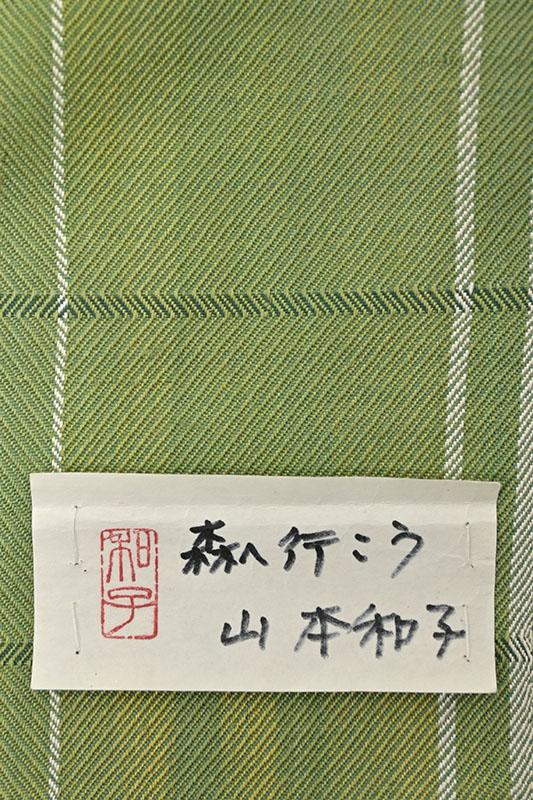 和子
森へ行こう
山本和子